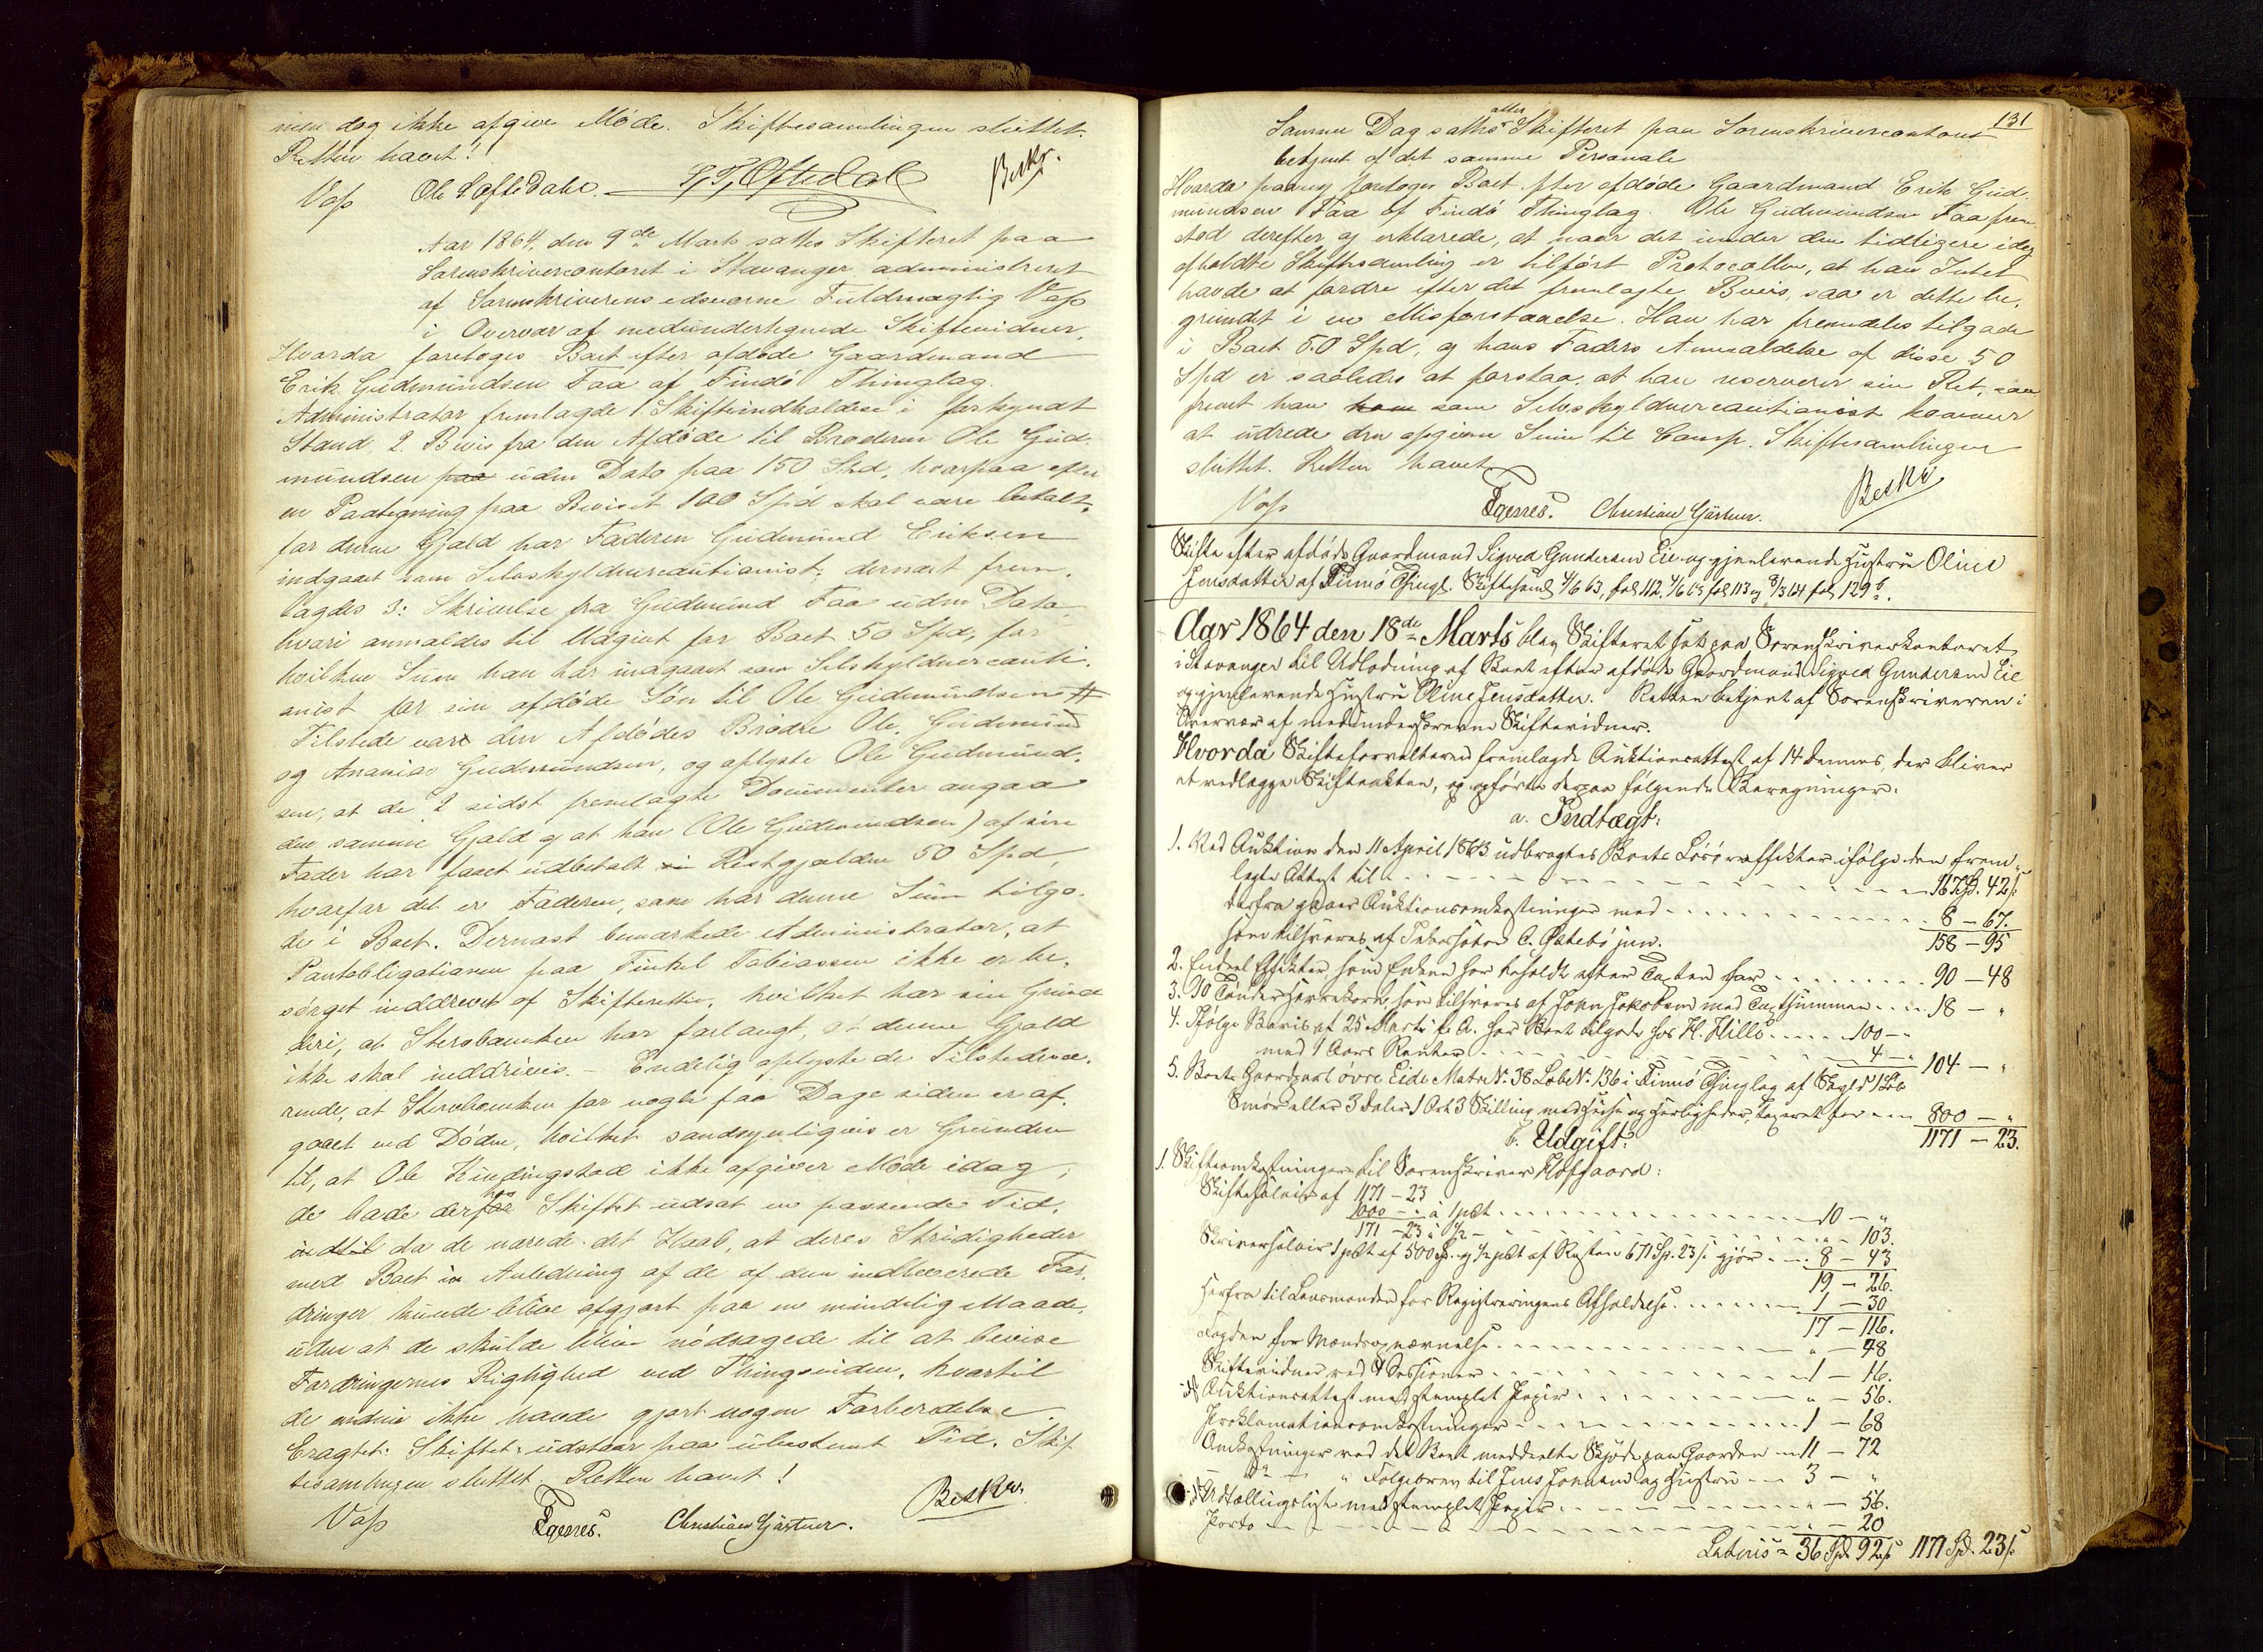 men dog ikke afgive Møde. Skiftesamlingen sluttet.
Retten hævet!
Voss Ole L Oftedahl. T. T. Oftedal Beskr.
Aar 1864, den 9de Marts sattes Skifteret paa
Sorenskrivercontoret i Stavanger administreret
af Sorenskriverens edsvorne Fuldmægtig Voss
i Overvær af medundertegnede Skiftevidner.
Hvorda foretoges Boet efter afdøde Gaardmand
Erik Gudmundsen Faa af Findø Thinglag.
Administrator fremlagde 1. Skifteindkaldelse i forkyndt
Stand, 2. Bevis fra den Afdøde til Broderen Ole Gud-
mundsen paa uden Dato paa 150 Spd, hvorpaa efter
en Paategning paa Beviset 100 Spd skal være betalt,
for denne Gjæld har Faderen Gudmund Eriksen
indgaaet som Selvskyldnercautionist, dernæst frem-
lagdes 3: Skrivelse fra Gudmund Faa uden Dato
hvori anmeldes til Udgivt for Boet 50 Spd, for
hvilken Sum han har indgaaet som Selvskyldnercauti-
onist for sin afdøde Søn til Ole Gudmundsen #
Tilstede vare den Afdødes Brødre Ole, Gudmund
og Ananias Gudmundsen, og oplyste Ole Gudmund-
sen, at de 2 sidst fremlagte Documenter angaa
den samme Gjæld og at han (Ole Gudmundsen) af sin
Fader har faaet udbetalt Restgjælden 50 Spd,
hvorfor det er Faderen, som har denne Sum tilgo-
de i Boet. Dernæst bemærkede Administrator, at
Pantobligationen paa Tinkel Tobiassen ikke er be-
sørget inddrevet af Skifteretten, hvilket har sin Grund
deri, at Stervboenken har forlangt, at denne Gjæld
ikke skal inddrives. – Endelig oplyste de Tilstedevæ-
rende, at Stervboenken for nogle faa Dage siden er af-
gaaet ved Døden, hvilket sandsynligvis er Grunden
til, at Ole Kindingstad ikke afgiver Møde idag;
de bade derfor Skiftet udsat en passende Tid,
indtil da de nærede det Haab, at deres Stridigheder
med Boet in Anledning af de af dem indleverede For-
dringer kunde blive afgjort paa en mindelig Maade,
uden at de skulde blive nødsagede til at bevise
Fordringernes Rigtighed ved Thingsvidne, hvortil
de endnu ikke havde gjort nogen Forberedelse
Eragtet: Skiftet udstaar paa ubestemt Tid. Skif-
tesamlingen sluttet. Retten hævet!
Voss Egenes. Christian Gärtner. Beskr.
131
Samme Dag sattes atter Skifteret paa Sorenskrivercontoret
betjent af det samme Personale
Hvorda paany foretoges Boet efter afdøde Gaardmand Erik Gud-
mundsen Faa af Findø Thinglag. Ole Gudmundsen Faa frem-
stod derefter og erklærede, at naar det under den tidligere idag
afholdte Skiftesamling er tilført Protocollen, at han Intet
havde at fordre efter det fremlagte Bevis, saa er dette be-
grundet i en Misforstaaelse. Han har fremdeles tilgode
i Boet 50 Spd, og hans Faders Anmeldelse af disse 50
Spd er saaledes at forstaa, at han reserverer sin Ret, saa
fremt han som Selvskyldnercautionist kommer
at udrede den opgivne Sum til Comp. Skiftesamlingen
sluttet. Retten hævet
Voss Egenes. Christian Gärtner. Beskr
Skifte efter afdøde Gaardmand Sigved Gundersen Eie og gjenlevende Hustru Oline
Jensdatter af Finnø Thingl. Skiftesaml 4/6 63, fol 112, 4/6 63 fol 113 og 8/3 64 fol 129 b.
Aar 1864 den 18de Marts blev Skifteret sat paa Sorenskriverkontoret
i Stavanger til Udlodning af Boet efter afdøde Gaardmand Sigved Gundersen Eie
og gjenlevende Hustru Oline Jensdatter. Retten betjent af Sorenskriveren i
Overvær af medunderskrevne Skiftevidner.
Hvorda Skifteforvalteren fremlagde Auktionsattest af 14 dennes, der bliver
at vedlægge Skifteakten, og opførte derpaa følgende Beregninger.
a. Indtægt:
1. Ved Auktion den 11 April 1863 udbragtes Boets Løsøreeffekter ifølge den frem-
lagte Attest til 167 Spd. 42 s
derfra gaaer Auktionsomkostninger med 8 – 67.
som tilsvares af Inkassator C. Østebø jun. 158 – 95
2. Endeel Effekter som Enken har beholdt efter Taxten for 90 – 48
3. 10 Tønder Havrekorn, som tilsvares af John Jakobsen med Taxtsummen 18 – "
4. Ifølge Bevis af 25 Marts f. A. har Boet tilgode hos H. Hille 100 –
med 1 Aars Renter 4 – " 104 – "
5. Boets Gaardpart øvre Eide Matr N. 38 Løbe N. 136 i Finnø Thinglag af Skyld 1 Løb
Smør eller 3 Daler 1 Ort 3 Skilling med Huse og Herligheder, taxeret for 800 – "
1171 – 23.
b. Udgift:
1. Skifteomkostninger til Sorenskriver Hofgaard:
Skiftesalair af 1171 – 23
1000 – " à 1 pCt 10 – "
171 – 23 à 1/2 – " – 103.
Skriversalair 1 pCt af 500 Spd. og 1/2 pCt af Resten 671 Sp. 23 s. gjør 8 – 43
19 – 26.
Herfra til Lensmanden for Registreringens Afholdelse 1 – 30
17 – 116.
Fogden for Mændsopnævnelse " – 48
Skiftevidner ved 4 Sessioner 1 – 16.
Auktionsattest med stemplet Papir " – 56.
Proklamationsomkostninger 1 – 68
Omkostninger ved det Boet meddeelte Skjøde paa Gaarden 11 – 72
– do – " Følgebrev til Jens Jonassen og Hustru 3 – "
Udlællingslist med stemplet Papir " – 56.
Porto " – 20
Lateris 36 Spd 92 s 1171 Spd. 23 s